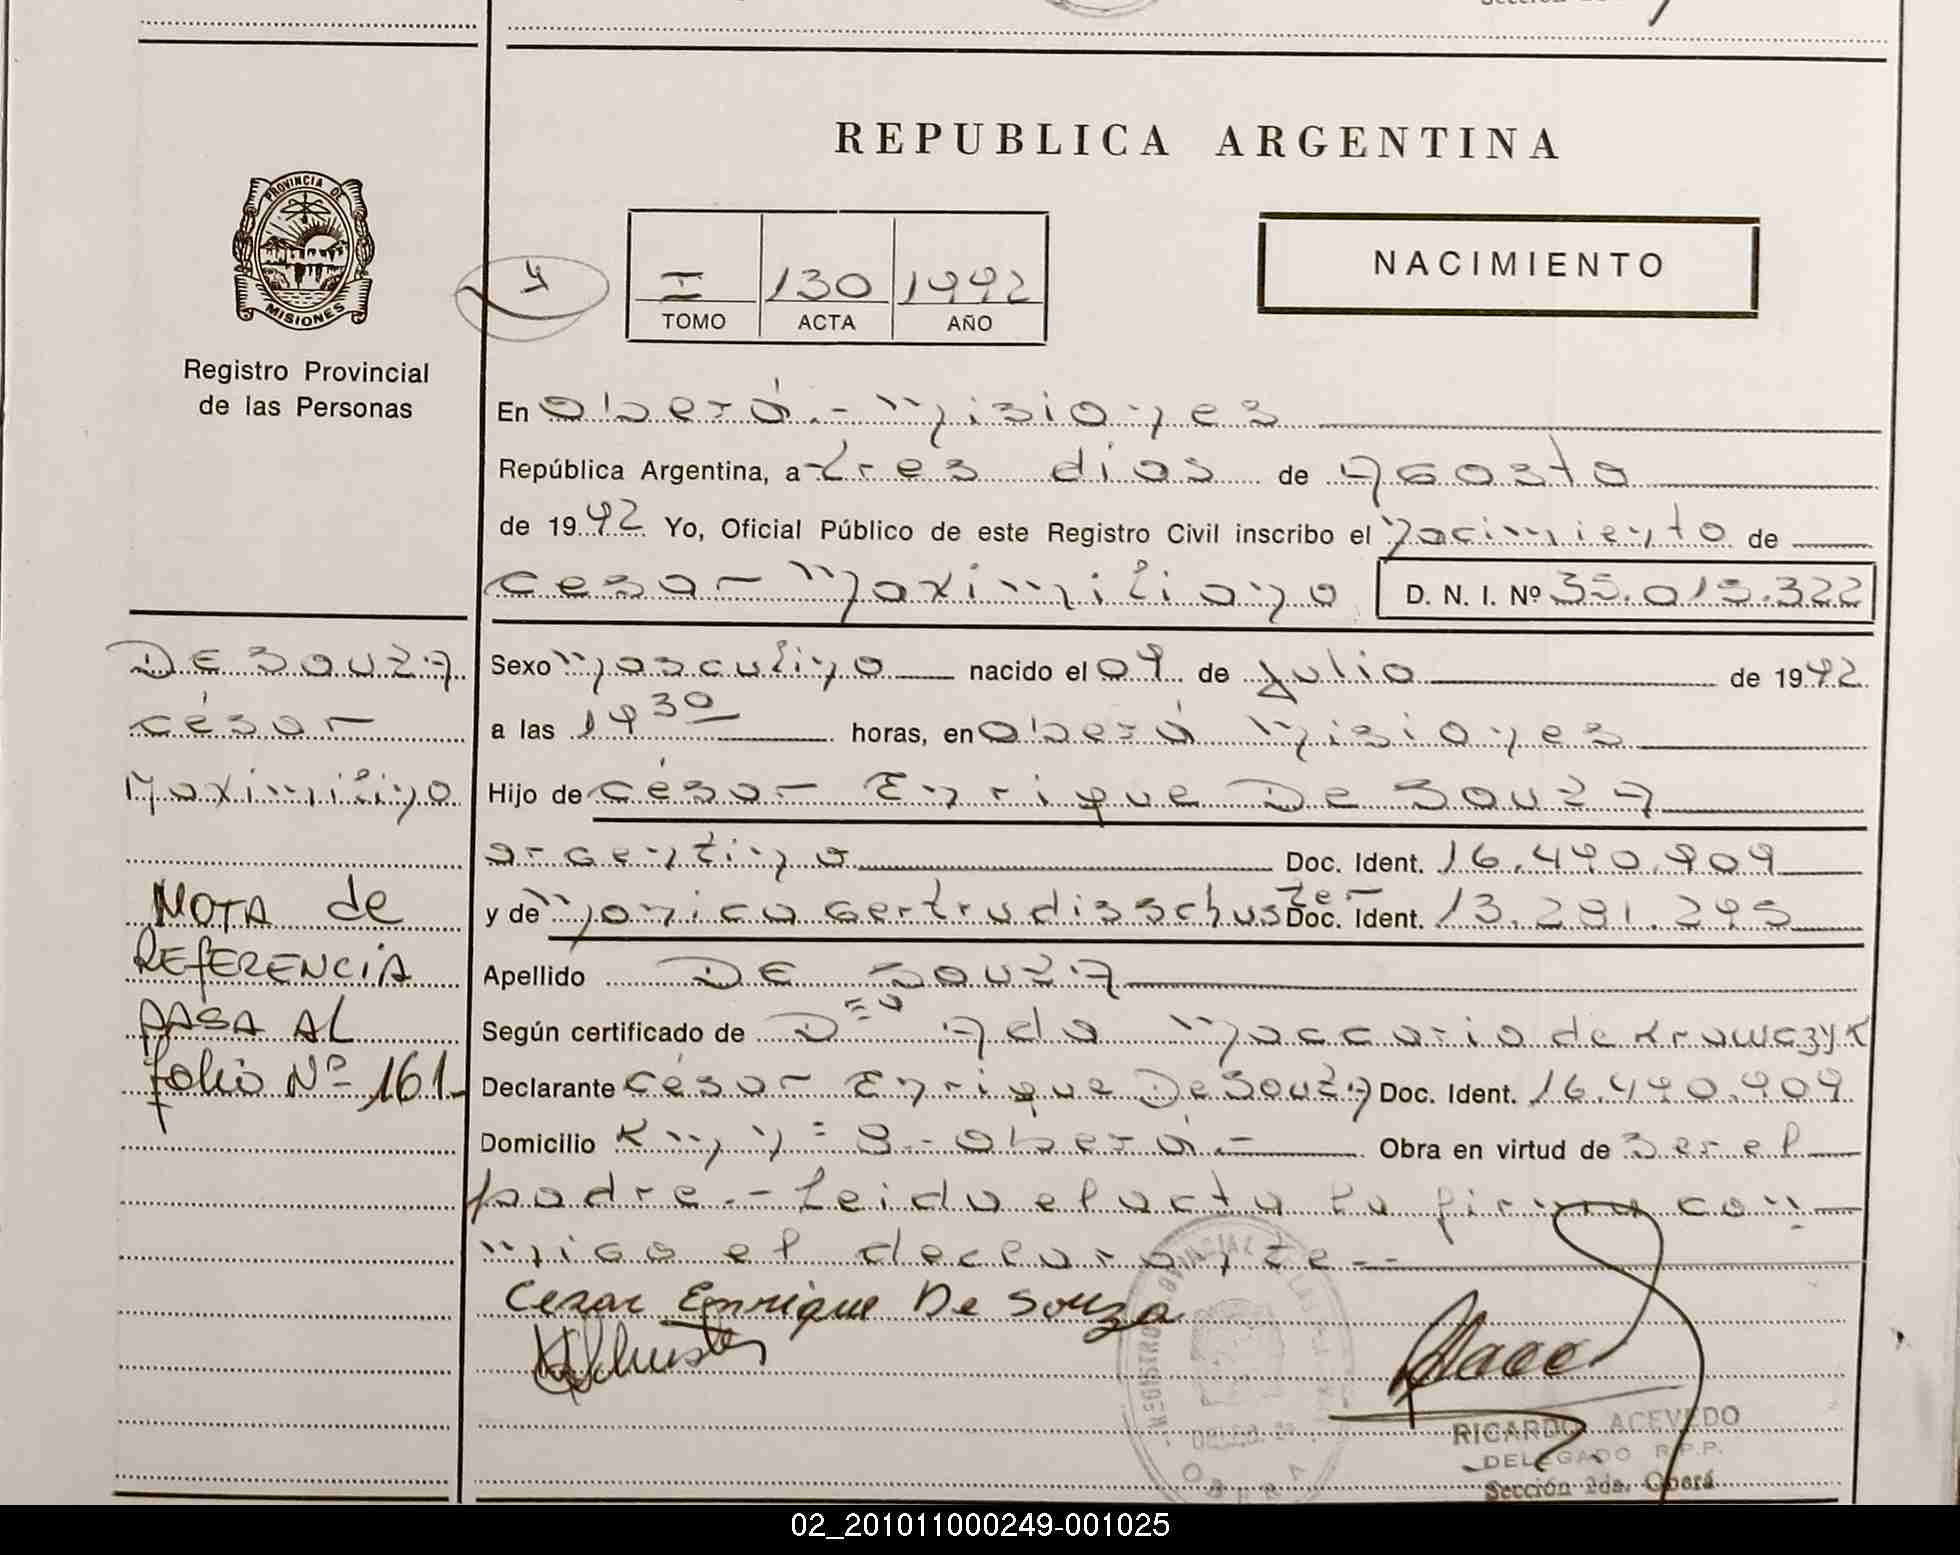 REPUBLICA ARGENTINA
PROVINCIA DE
MISIONES
Registro Provincial
de las Personas
I 130 1992
TOMO ACTA AÑO
NACIMIENTO
En Oberá.- Misiones
República Argentina, a tres dias de Agosto
de 1992 Yo, Oficial Público de este Registro Civil inscribo el Nacimiento de
Cesar Maximiliano D. N. I. Nº 35.015.322
DE SOUZA
César
Maximiliyo
NOTA de
REFERENCIA
PASA AL
folio Nº 161-
Sexo Masculino nacido el 09 de Julio de 1992
a las 19 30 horas, en Oberá Misiones
Hijo de César Enrique De Souza
argentino Doc. Ident. 16.490.909
y de Monica Gertrudis Schuster Doc. Ident. 13.291.295
Apellido DE SOUZA
Según certificado de Ada Maccario de Krawczyk
Declarante César Enrique De Souza Doc. Ident. 16.490.909
Domicilio Km Nº 8.- Oberá.- Obra en virtud de ser el
padre.- Leida el acta la firma con
migo el declarante.-
Cezar Enrique De Souza
Schuster
RICARDO ACEVEDO
DELEGADO R.P.P.
Sección 2da. Oberá
02_201011000249-001025